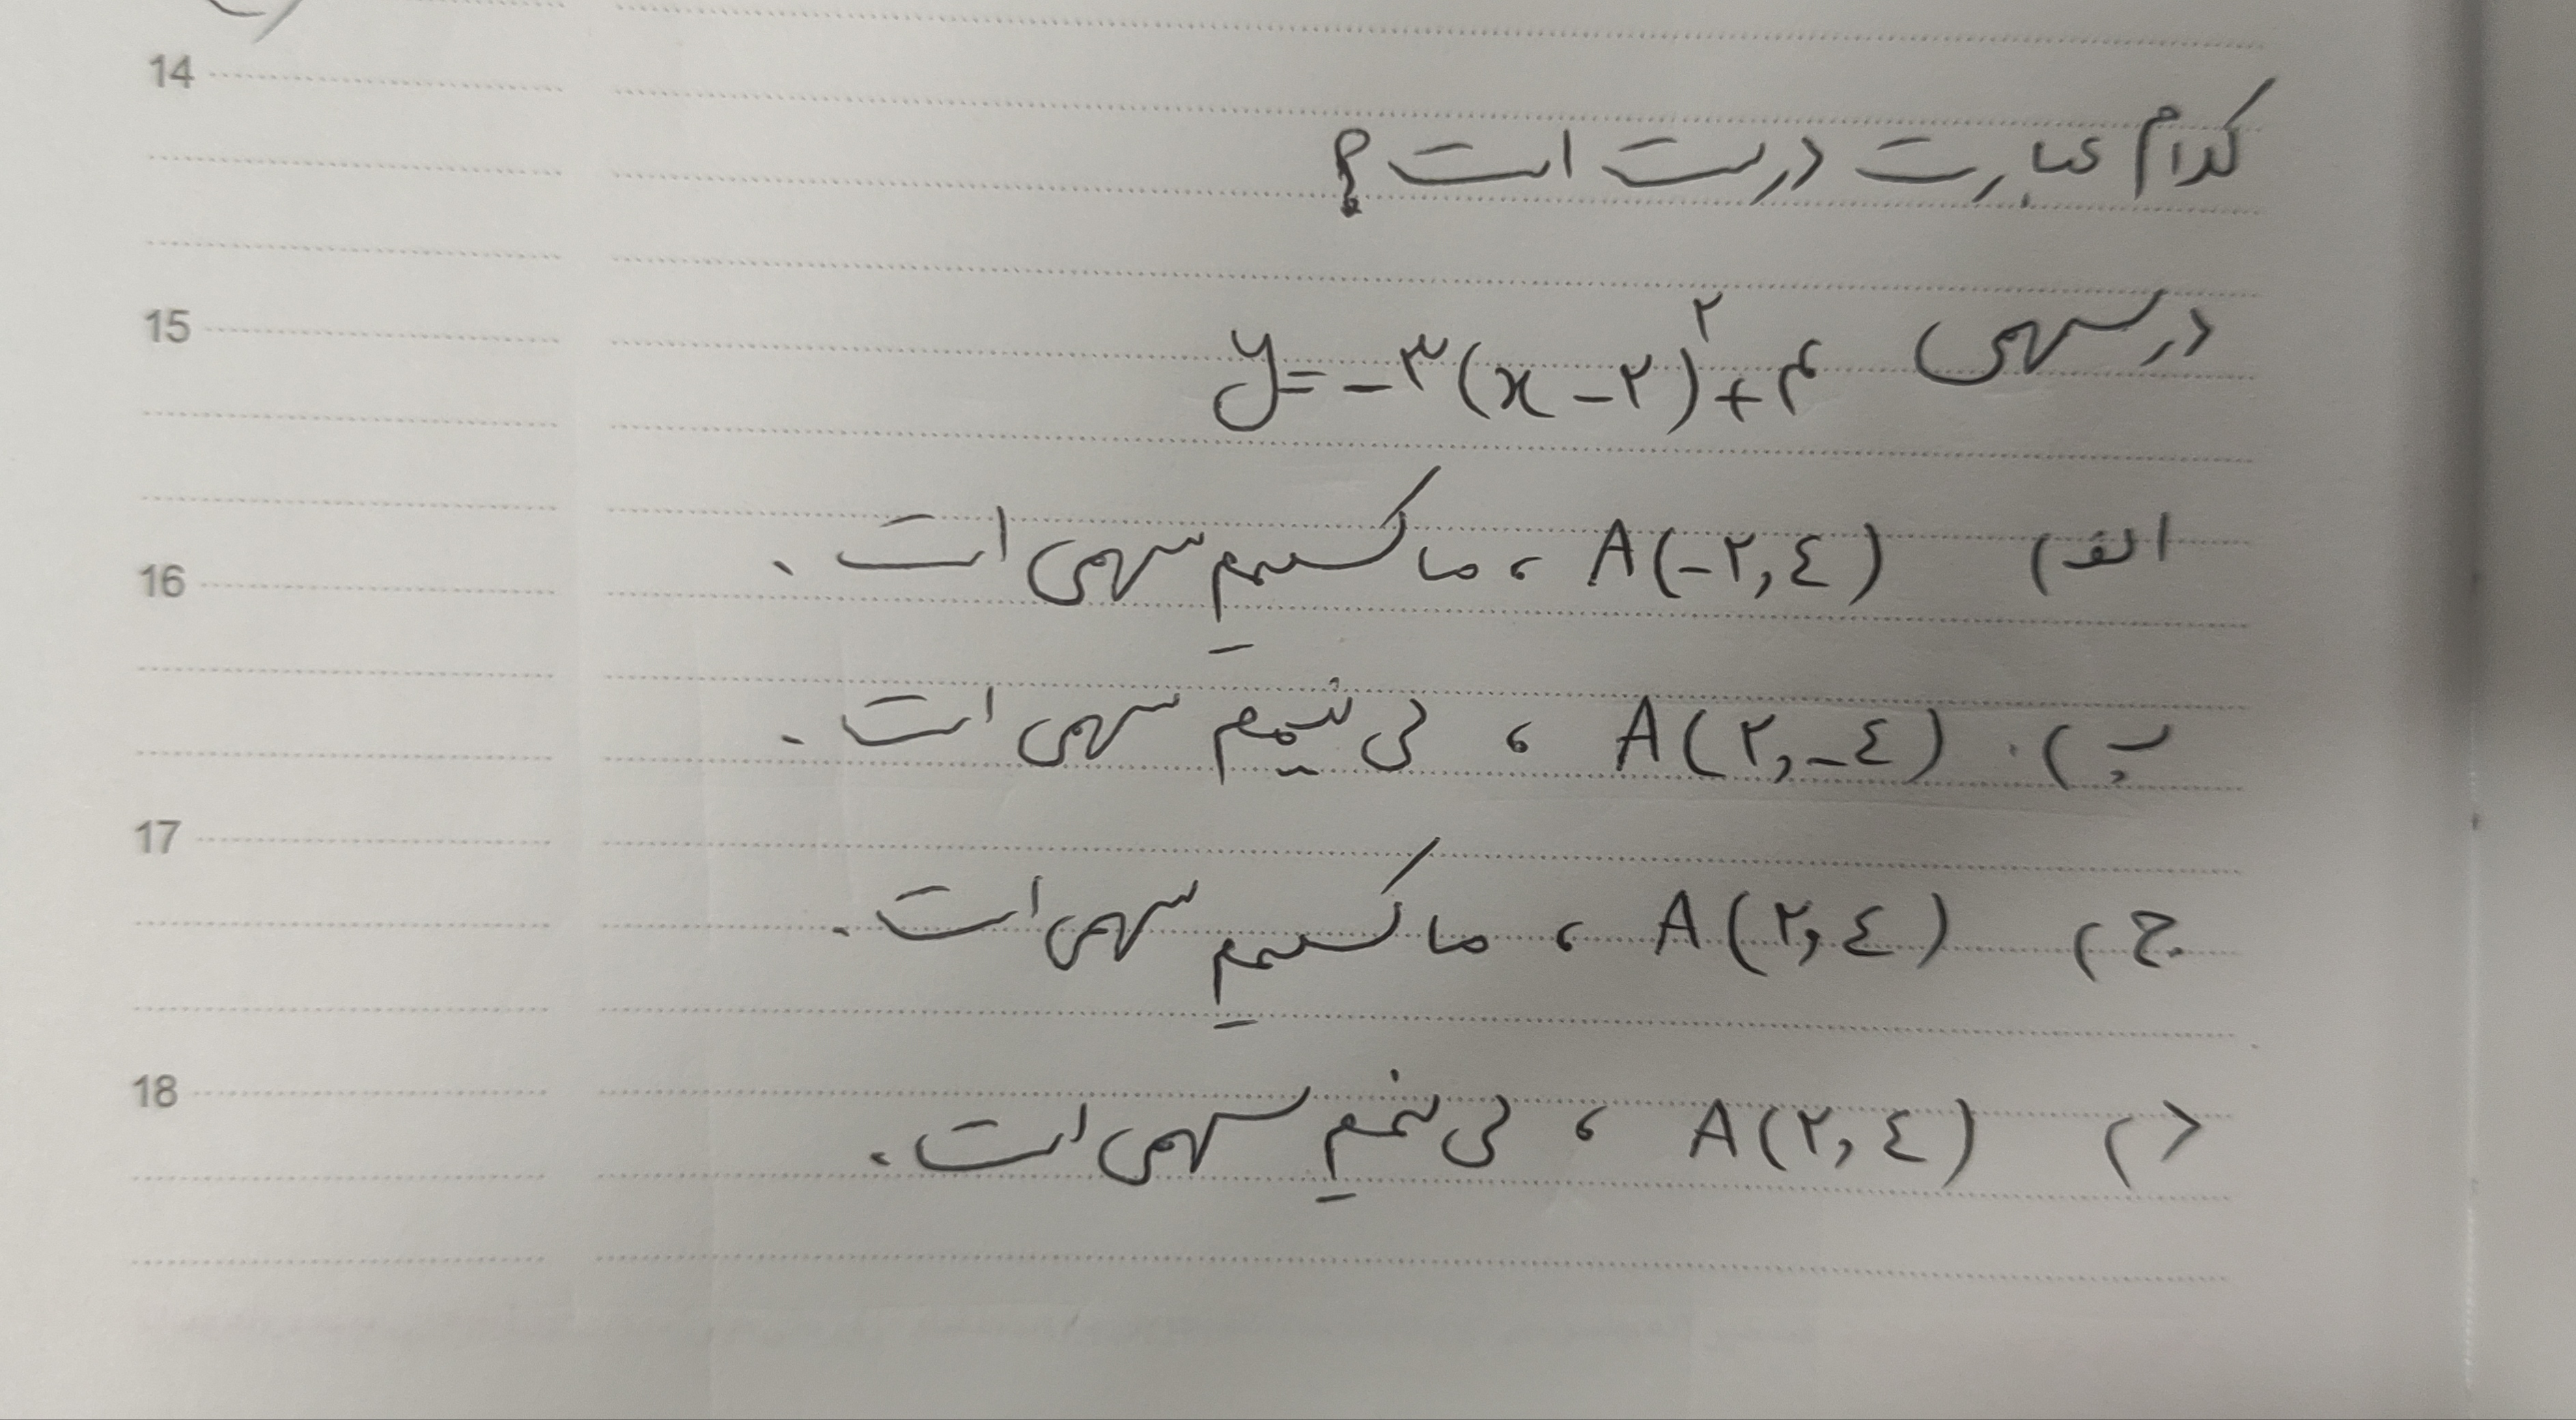 14
کدام عبارت درست است ؟
15
در سهمی y = -۳(x - ۲)^۲ + ۴
الف) A(-۲,٤) ، ماکسیمم سهمی است .
16
ب) A(۲,-٤) ، می نیمم سهمی است .
17
ج) A(۲,٤) ، ماکسیمم سهمی است .
18
د) A(۲,٤) ، می نیمم سهمی است .